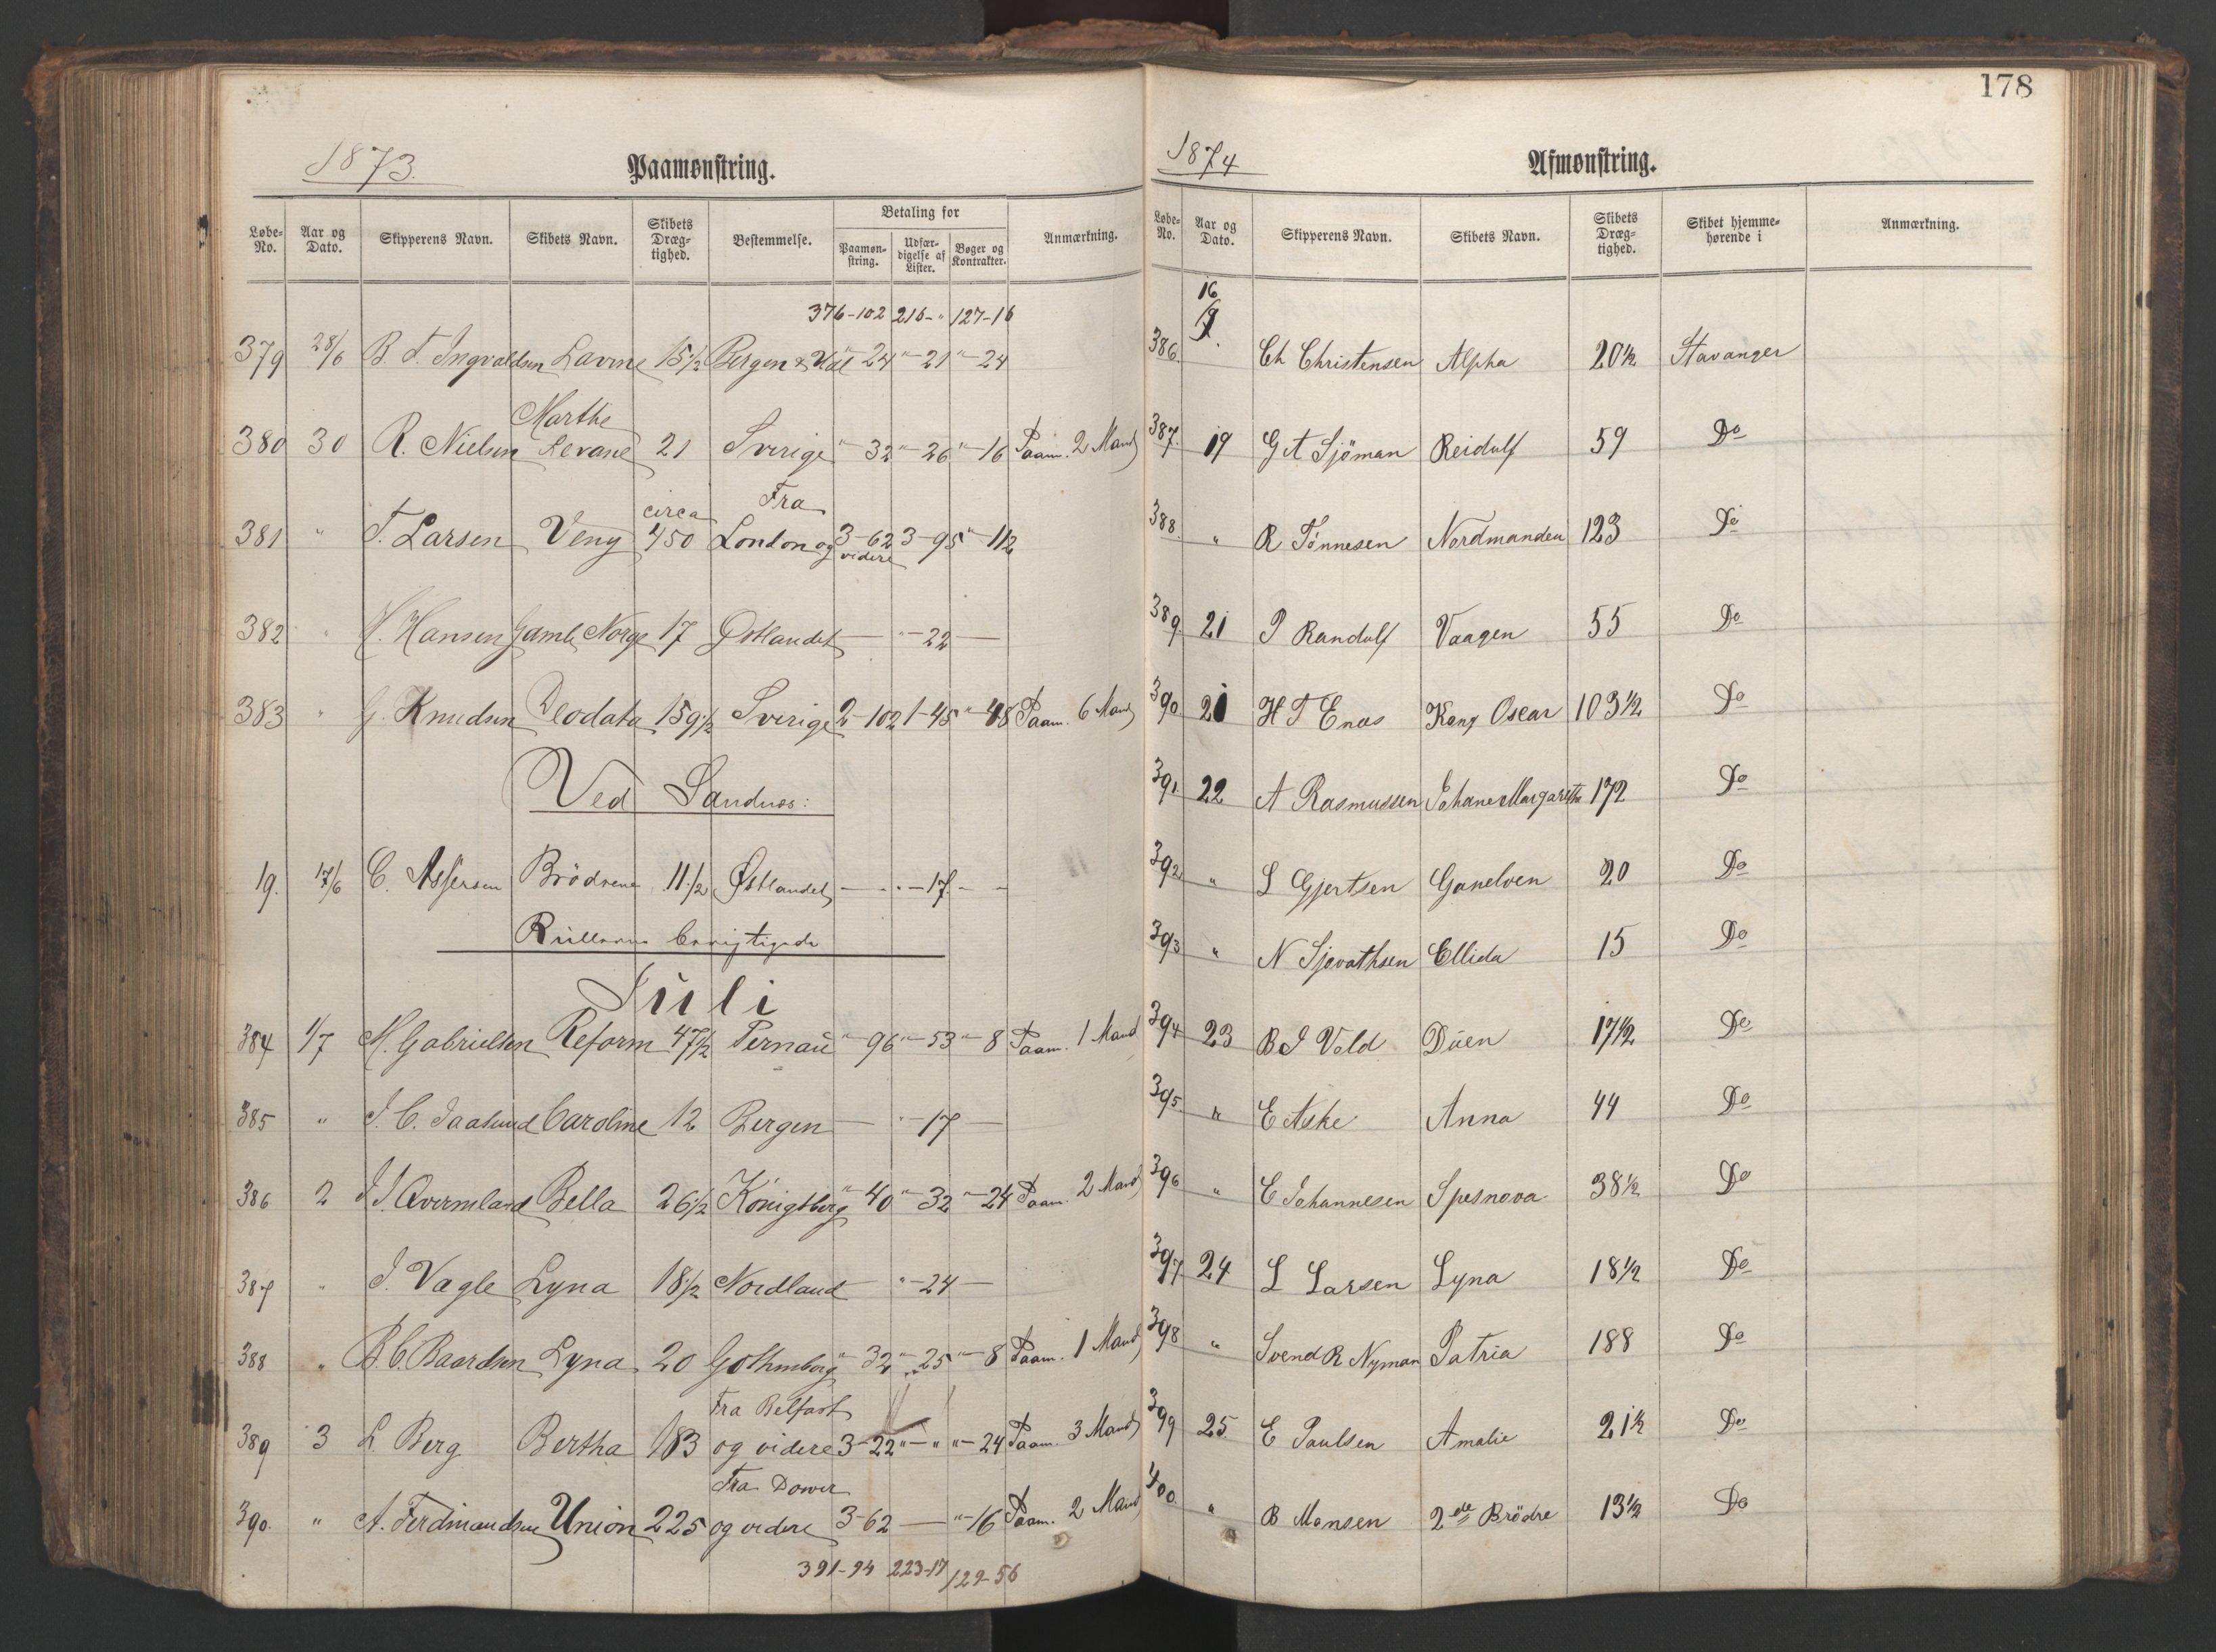 178
1873. Paamønstring.
Løbe-No. Aar og Dato. Skipperens Navn. Skibets Navn. Skibets Dræg-tighed. Bestemmelse. Betaling for Paamøn-string. Udfær-digelse af Lister. Bøger og Kontrakter. Anmærkning.
376-102 216-" 127-16
379 28/6 B. T. Ingvaldsen Lavine 15 1/2 Bergen & "-24 "-21 "-24
Marthe
380 30 R. Nielsen Levane 21 Sverige "-32 "-26 "-16 Paam. 2 Mand
circa Fra
381 " T. Larsen Veny 450 London og videre 3-62 3-95 "-112
382 " H. Hansen Gamle Norge 17 Østlandet — "-22 —
383 " G. Knudsen Deodata 159 1/2 Sverige 2-102 1-45 "-48 Paam. 6 Mand
Ved Sandnæs:
19. 17/6 C. Assersen Brödrene 11 1/2 Østlandet — "-17 —
Rullerne berigtigede
Juli
384 1/7 M. Gabrielsen Reform 47 1/2 Pernau "-96 "-53 "-8 Paam. 1 Mand
385 " J. C. Jaasund Caroline 12 Bergen — "-17 —
386 2 J. J. Qvermland Bella 26 1/2 Königsberg "-40 "-32 "-24 Paam. 2 Mand
387 " J. Vagle Lyna 18 1/2 Nordland — "-24 —
388 " B. C. Baardsen Lyna 20 Gothenborg "-32 "-25 "-8 Paam. 1 Mand
Fra Belfast
389 3 L. Berg Bertha 183 og videre 3-22 "-" "-24 Paam. 3 Mand
Fra Dower
390. " A. Ferdinandsen Union 225 og videre 3-62 — "-16 Paam. 2 Mand
391-94 223-17 129-56
1874 Afmønstring.
Løbe-No. Aar og Dato. Skipperens Navn. Skibets Navn. Skibets Dræg-tighed. Skibet hjemme-hørende i Anmærkning.
16/9.
386. Ch Christensen Alpha 20 1/2 Stavanger
387. 19 G A Sjöman Reidulf 59 Do
388. " R Tönnesen Nordmanden 123 Do
389. 21 P Randulf Vaagen 55 Do
390 21 H T Enæs Kong Oscar 103 1/2 Do
391. 22 A Rasmussen Johane Margarethe 172 Do
392. " L Gjertsen Ganelven 20 Do
393 " N Sjovathsen Ellida 15 Do
394 23 B J Vold Duen 17 1/2 Do
395. " E Aske Anna 44 Do
396 " E Johannesen Spesnova 38 1/2 Do
397 24 L Larsen Lyna 18 1/2 Do
398 " Svend R Nyman Patria 188 Do
399 25. E Paulsen Amalie 21 1/2 Do
400. " B Monsen 2de Brödre 13 1/2 Do